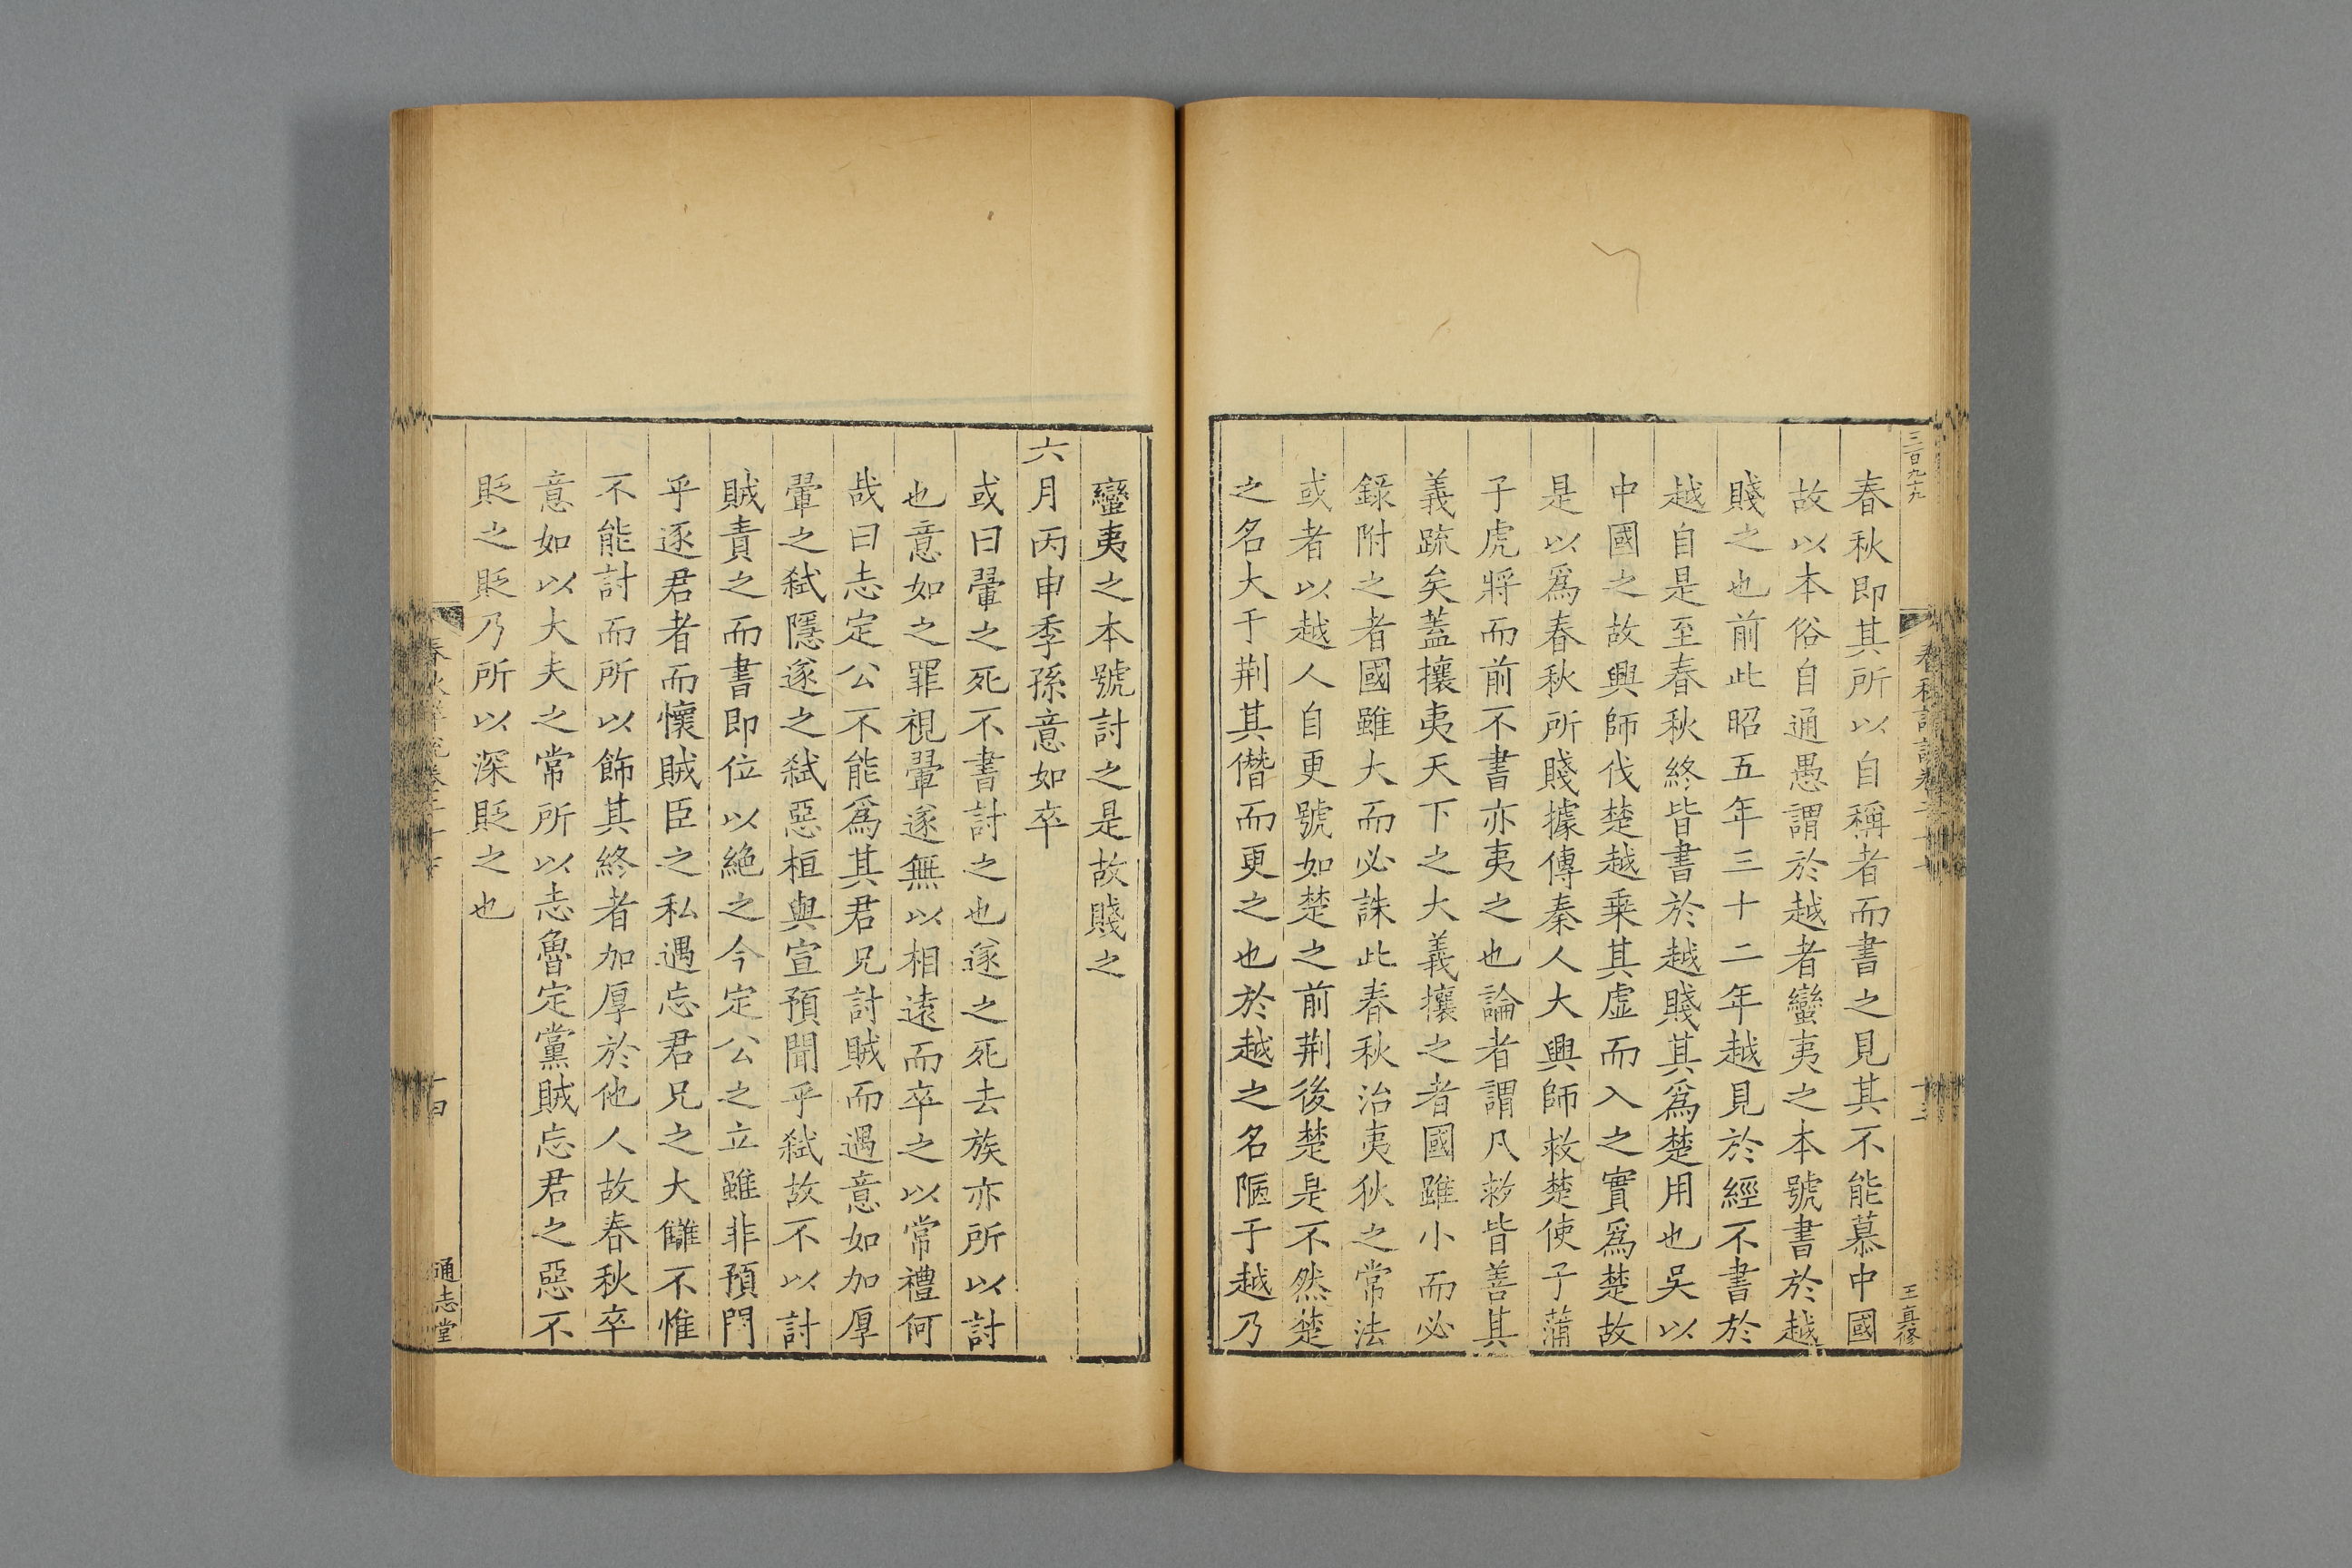 三百九十九
王真修
春秋即其所以自稱者而書之見其不能慕中國
故以本俗自通愚謂於越者蠻夷之本號書於越
賤之也前此昭五年三十二年越見於經不書於
越自是至春秋終皆書於越賤其爲楚用也吳以
中國之故興師伐楚越乗其虛而入之實爲楚故
是以爲春秋所賤據傳秦人大興師救楚使子蒲
子虎將而前不書亦夷之也論者謂凡救皆善其
義疏矣蓋攘夷天下之大義攘之者國雖小而必
錄附之者國雖大而必誅此春秋治夷狄之常法
或者以越人自更號如楚之前荆後楚是不然楚
之名大于荆其僭而更之也於越之名陋于越乃
蠻夷之本號討之是故賤之
六月丙申季孫意如卒
或曰翬之死不書討之也遂之死去族亦所以討
也意如之罪視翬遂無以相遠而卒之以常禮何
哉曰志定公不能爲其君兄討賊而遇意如加厚
翬之弑隱遂之弑惡桓與宣預聞乎弑故不以討
賊責之而書即位以絶之今定公之立雖非預門
乎逐君者而懷賊臣之私遇忘君兄之大讎不惟
不能討而所以飾其終者加厚於他人故春秋卒
意如以大夫之常所以志魯定黨賊忘君之惡不
貶之貶乃所以深貶之也
十四
通志堂